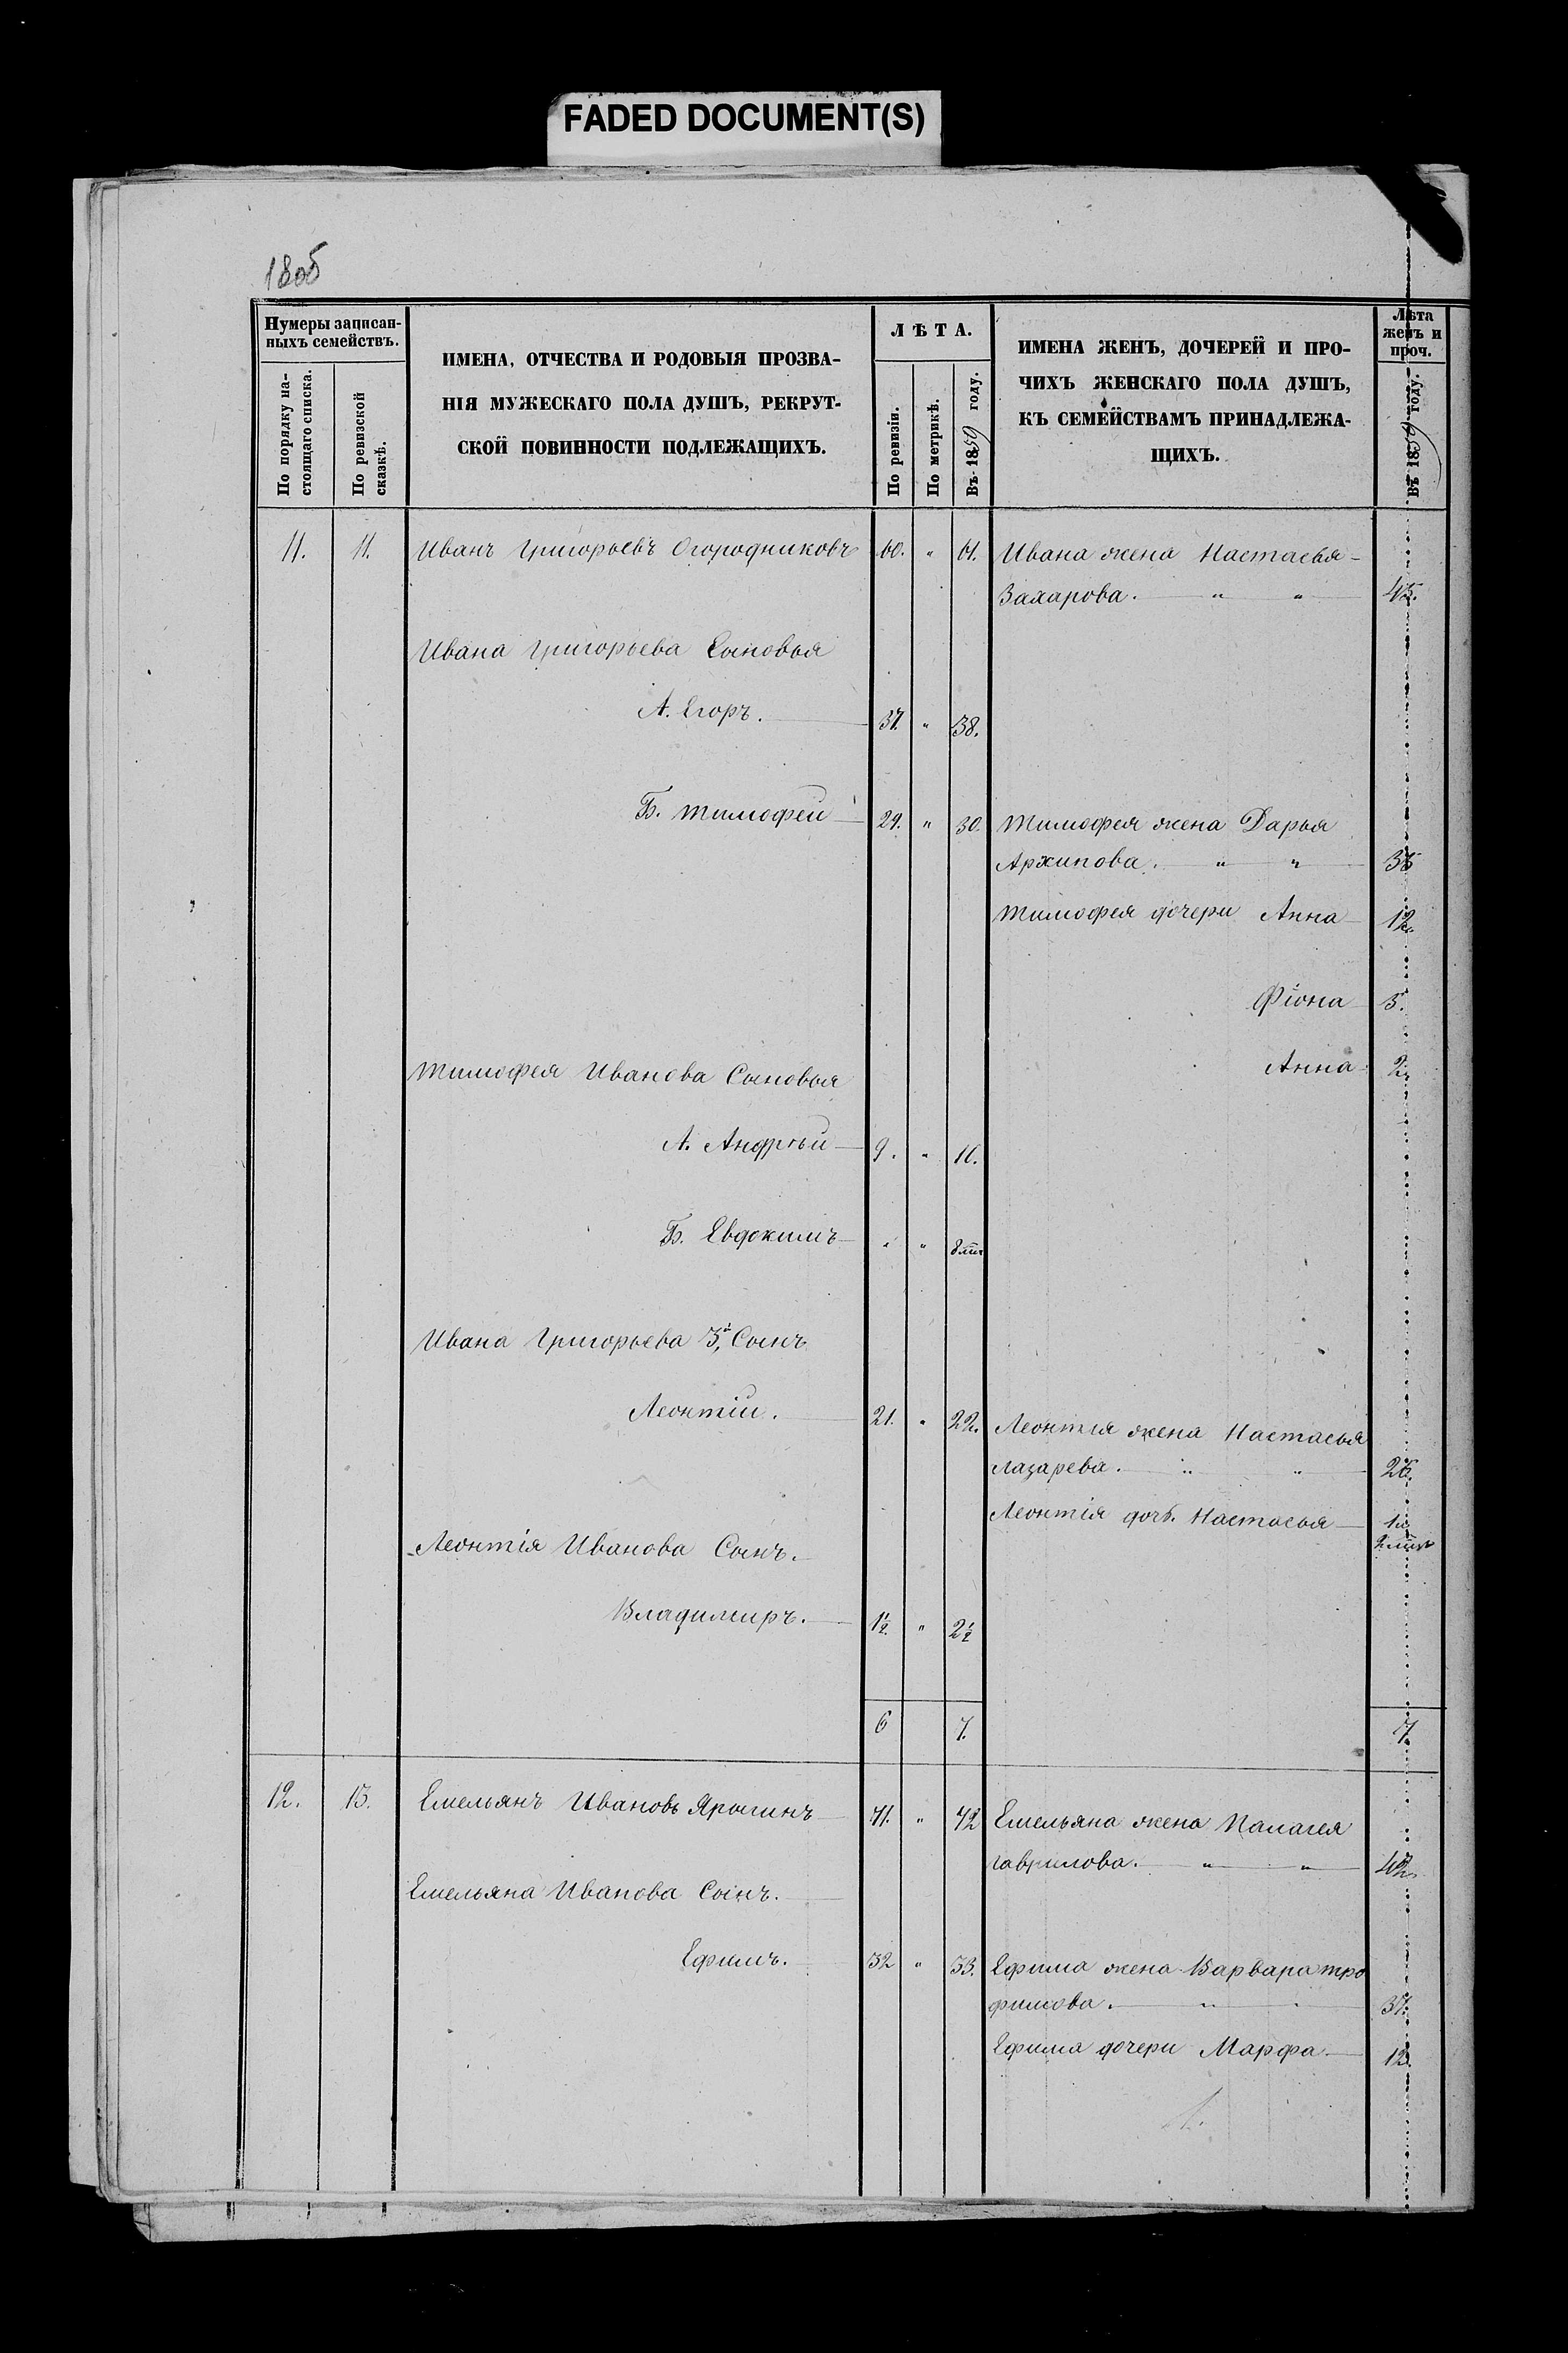 FADED DOCUMENT(S)
1805
Нумеры записан-
ныхъ семействъ.
По порядку на-
стоящаго списка.
По ревизской
сказкѣ.
ИМЕНА, ОТЧЕСТВА И РОДОВЫЯ ПРОЗВА-
НІЯ МУЖЕСКАГО ПОЛА ДУШЪ, РЕКРУТ-
СКОЙ ПОВИННОСТИ ПОДЛЕЖАЩИХЪ.
ЛѢТА.
По ревизіи.
По метрикѣ.
Въ 1859 году.
ИМЕНА ЖЕНЪ, ДОЧЕРЕЙ И ПРО-
ЧИХЪ ЖЕНСКАГО ПОЛА ДУШЪ,
КЪ СЕМЕЙСТВАМЪ ПРИНАДЛЕЖА-
ЩИХЪ.
Лѣта
женъ и
проч.
Въ 1859 году.
11. 11. Иванъ Григорьевъ Огородниковъ 60. " 61. Ивана жена Настасья
Захарова. " " 45.
Ивана Григорьева Сыновья
А. Егоръ. 37. " 38.
Б. Тимофей 29. " 30. Тимофея жена Дарья
Архипова. " "
Тимофея дочери Анна 12.
Фіона 5.
Тимофея Иванова Сыновья Анна 2
А. Андрѣй 9. " 10.
Б. Евдокимъ " "
Ивана Григорьева 3й Сынъ
Леонтій. 21. " 22. Леонтія жена Настасья
Лазарева. " " 26.
Леонтія дочь Настасья
Леонтія Иванова Сынъ.
Владимиръ. 1½ " 2½
6 7. 7.
12. 13. Емельянъ Ивановъ Ярыгинъ 71. " 72 Емельяна жена Палагея
Гаврилова. " "
Емельяна Иванова Сынъ.
Ефимъ. 32 " 33. Ефима жена Варвара Тро
фимова. " " 37.
Ефима дочери Марфа